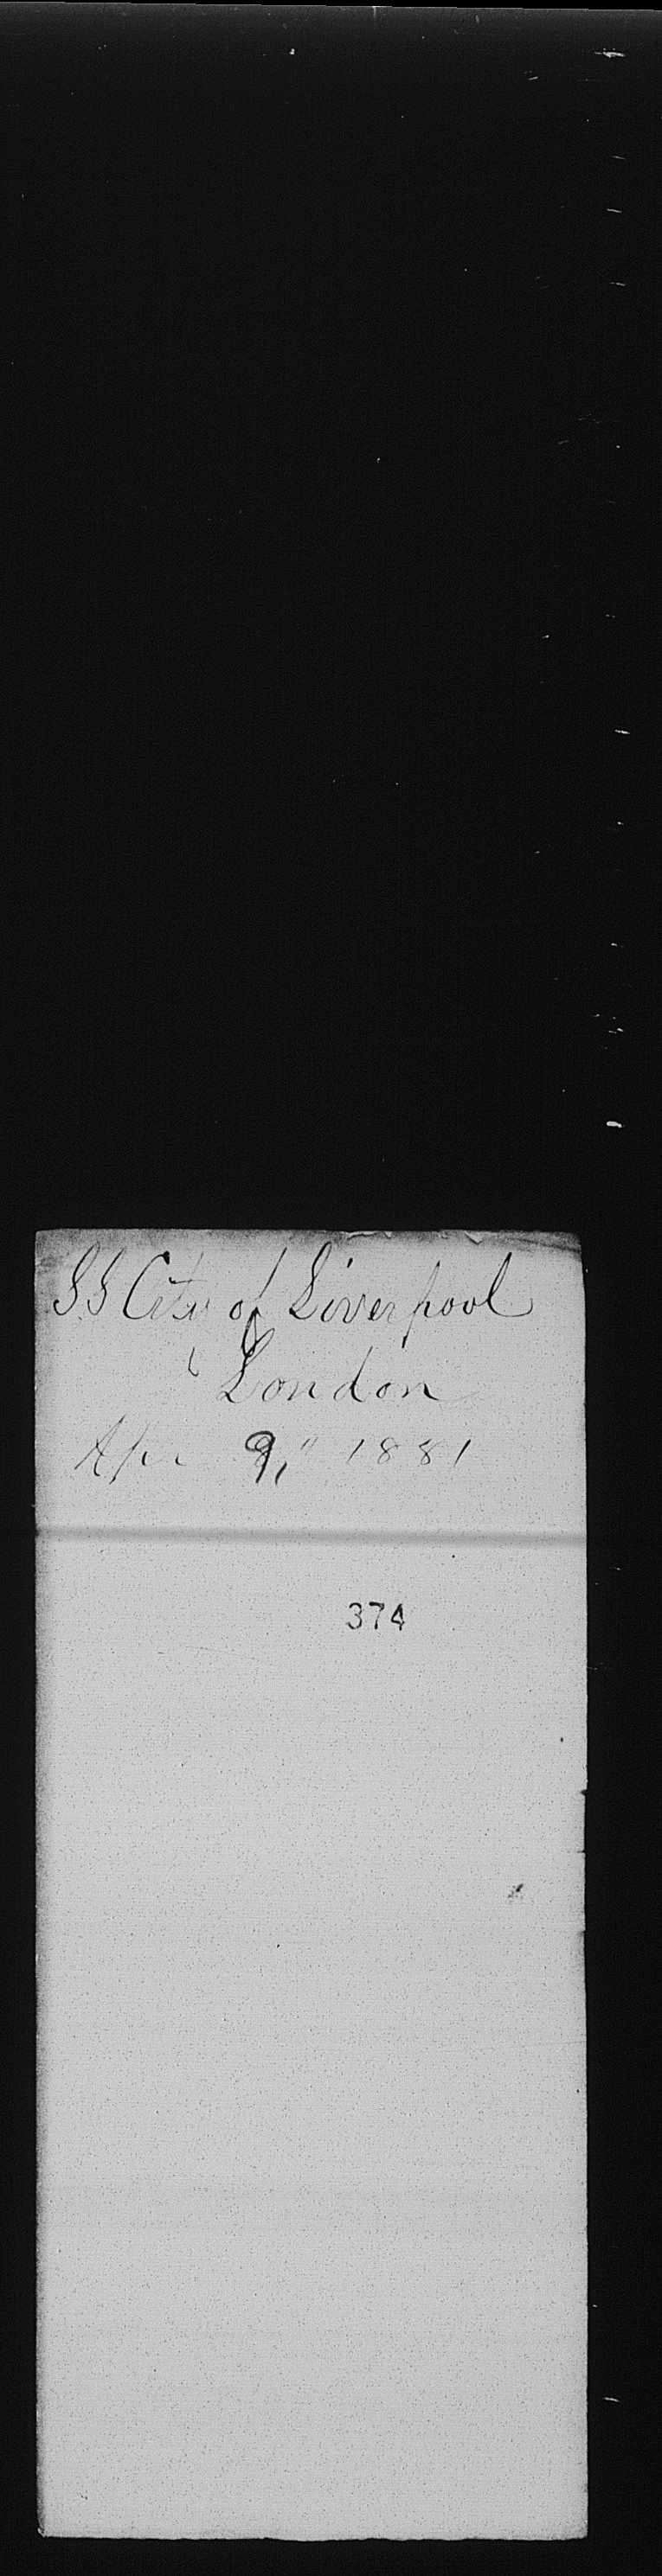 SS City of Liverpool
London
Apr 9," 1881
374